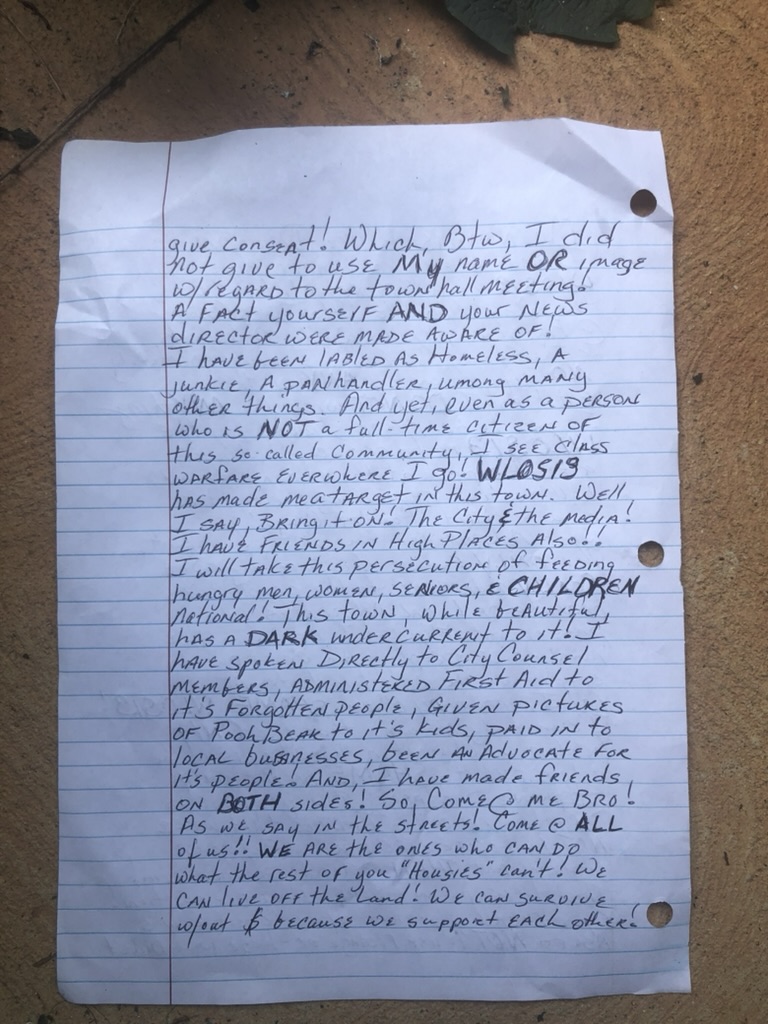 give consent! Which, Btw, I did
not give to use My name OR image
w/regard to the town hall meeting!
A FACT YOURSELF AND YOUR NEWS
DIRECTOR WERE MADE AWARE OF!
I HAVE BEEN LABLED AS HOMELESS, A
junkie, A PANHANDLER, umong MANY
other things. And yet, even as a PERSON
who is NOT a full-time citizen of
this so called Community, I SEE CLASS
WARFARE EVERWHERE I go! WLOS13
has made me A TARGET in this town. Well,
I SAY, BRING it ON! The City & the MEDIA!
I HAVE FRIENDS IN HIGH PLACES Also!!
I will take this persecution of feeding
hungry men, women, SENIORS, & CHILDREN
National! This town, while beautiful,
has A DARK undercurrent to it! I
have spoken Directly to City Counsel
MEMBERS, ADMINISTERED FIRST Aid to
it's Forgotten people, Given PICTURES
OF Pooh BEAR to it's kids, PAID IN to
local businesses, been AN Advocate FOR
it's people! AND, I have made friends
ON BOTH sides! So, Come @ me BRO!
AS we SAY IN the streets! Come @ ALL
of us!! WE ARE the ONES who CAN DO
what the rest of you "Housies" can't! We
CAN live off the Land! We can SURVIVE
w/out $ because we support EACH other!